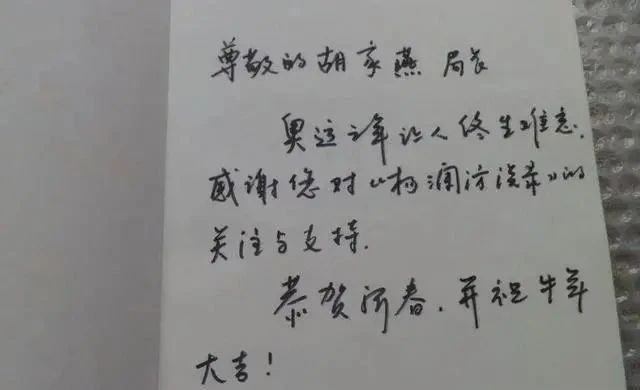 尊敬的胡家燕 局长
奥运之年让人终生难忘,
感谢您对《杨澜访谈录》的
关注与支持.
恭贺新春.并祝牛年
大吉!